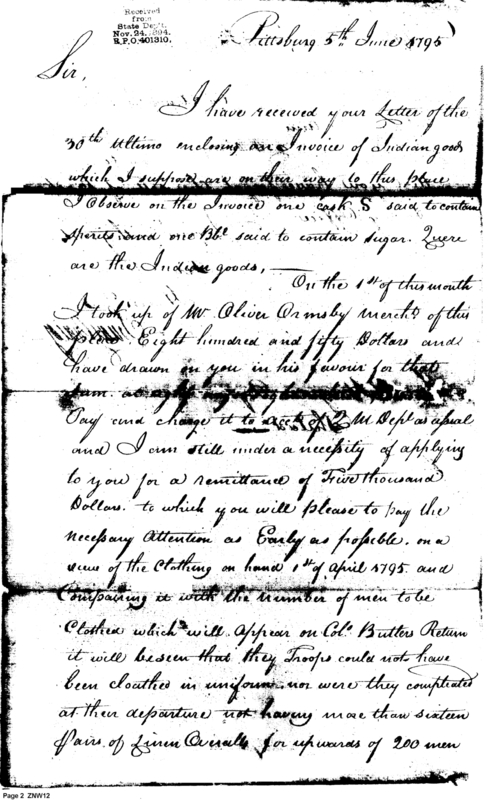 Received
from
State Dep't.
Nov. 24, 1894.
R.P.O. 401310.
Pittsburg 5th June 1795
Sir,
I have received your Letter of the
30th Ultimo enclosing an Invoice of Indian goods
which I suppose are on their way to this place
I observe on the Invoice one cask S said to contain
spirits and one Bbl said to contain sugar. Quere
are the Indian goods, —
On the 1st of this month
I took up of Mr Oliver Ormsby Mercht of this
place Eight hundred and fifty Dollars and
have drawn on you in his favour for that
sum. at
Pay and charge it to acct of Q M Dept as usual
and I am still under a necessity of applying
to you for a remittance of Five thousand
Dollars. to which you will please to pay the
necessary Attention as Early as possible. on a
view of the Clothing on hand 1st of April 1795 and
Comparing it with the number of men to be
Clothed which will Appear on Colo Butlers Return
it will be seen that they Troops could not have
been cloathed in uniform. nor were they compleated
at their departure not having more than sixteen
Pairs of Linen Overalls for upwards of 200 men
Page 2 ZNW12